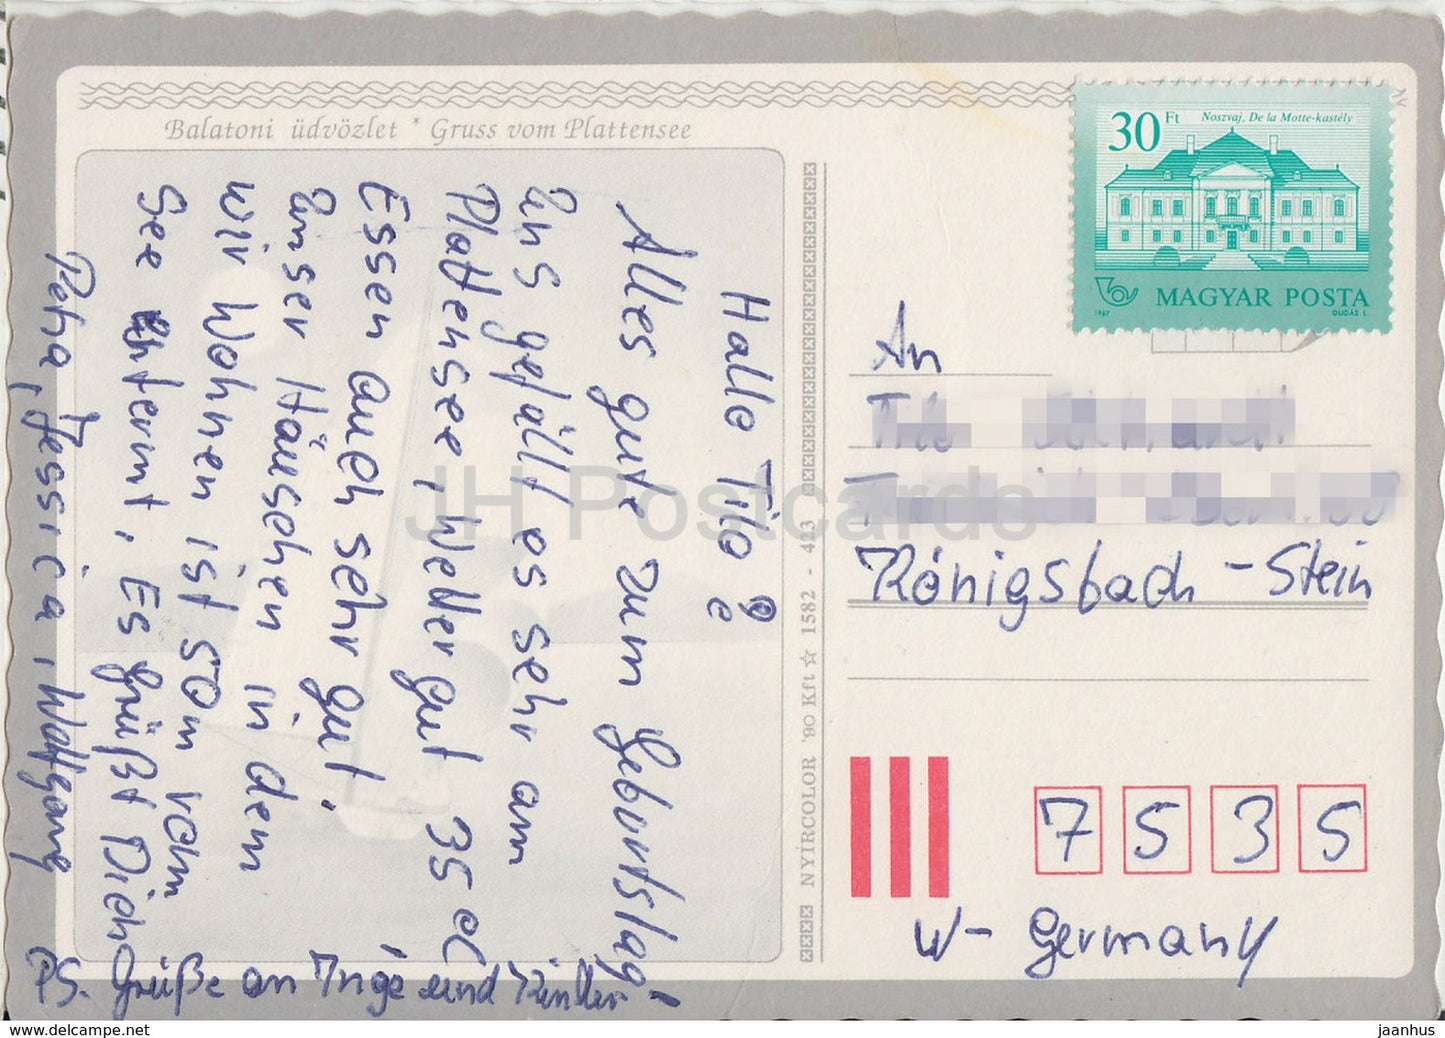 Balatoni üdvözlet * Gruss vom Plattensee
Hallo Tilo
Alles gute zum Geburtstag!
Uns gefällt es sehr am
Plattensee, Wetter gut 35°C
Essen auch sehr gut.
Unser Häuschen in dem
wir Wohnen ist 50m vom
See enternt. Es grüßt Dich
Petra, Jessica, Wolfgang
PS. Grüße an Inge und Kinder
NYÍRCOLOR '90 Kft ☆ 1582 - 423
30 Ft
Noszvaj, De la Motte-kastély
MAGYAR POSTA
1987
DUDÁS L.
An
Königsbach - Stein
7535
W- Germany
JH Postcards
jaanhus
https://www.jhpostcards.com